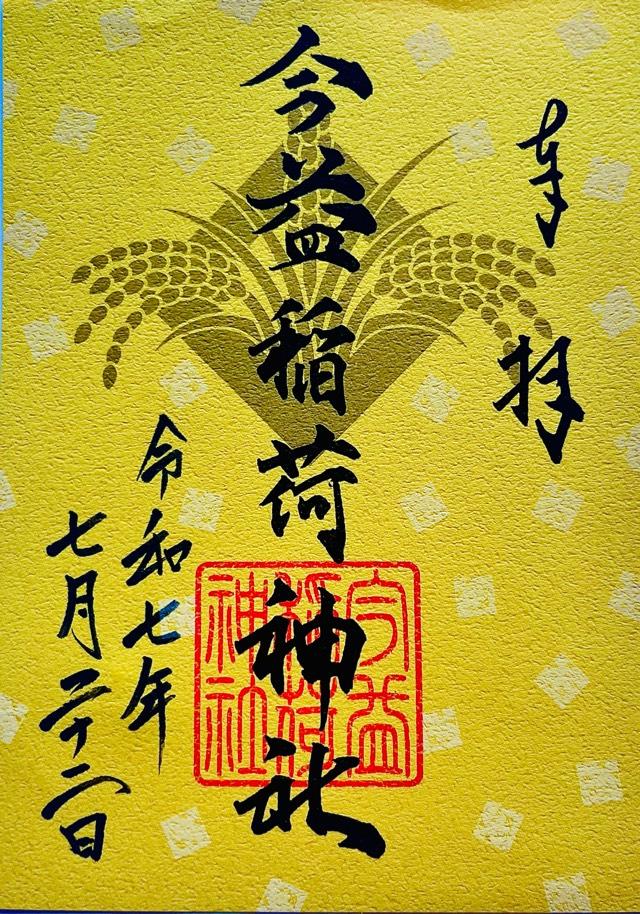 奉拝
今益稲荷神社
今益
稲荷
神社
令和七年
七月二十二日